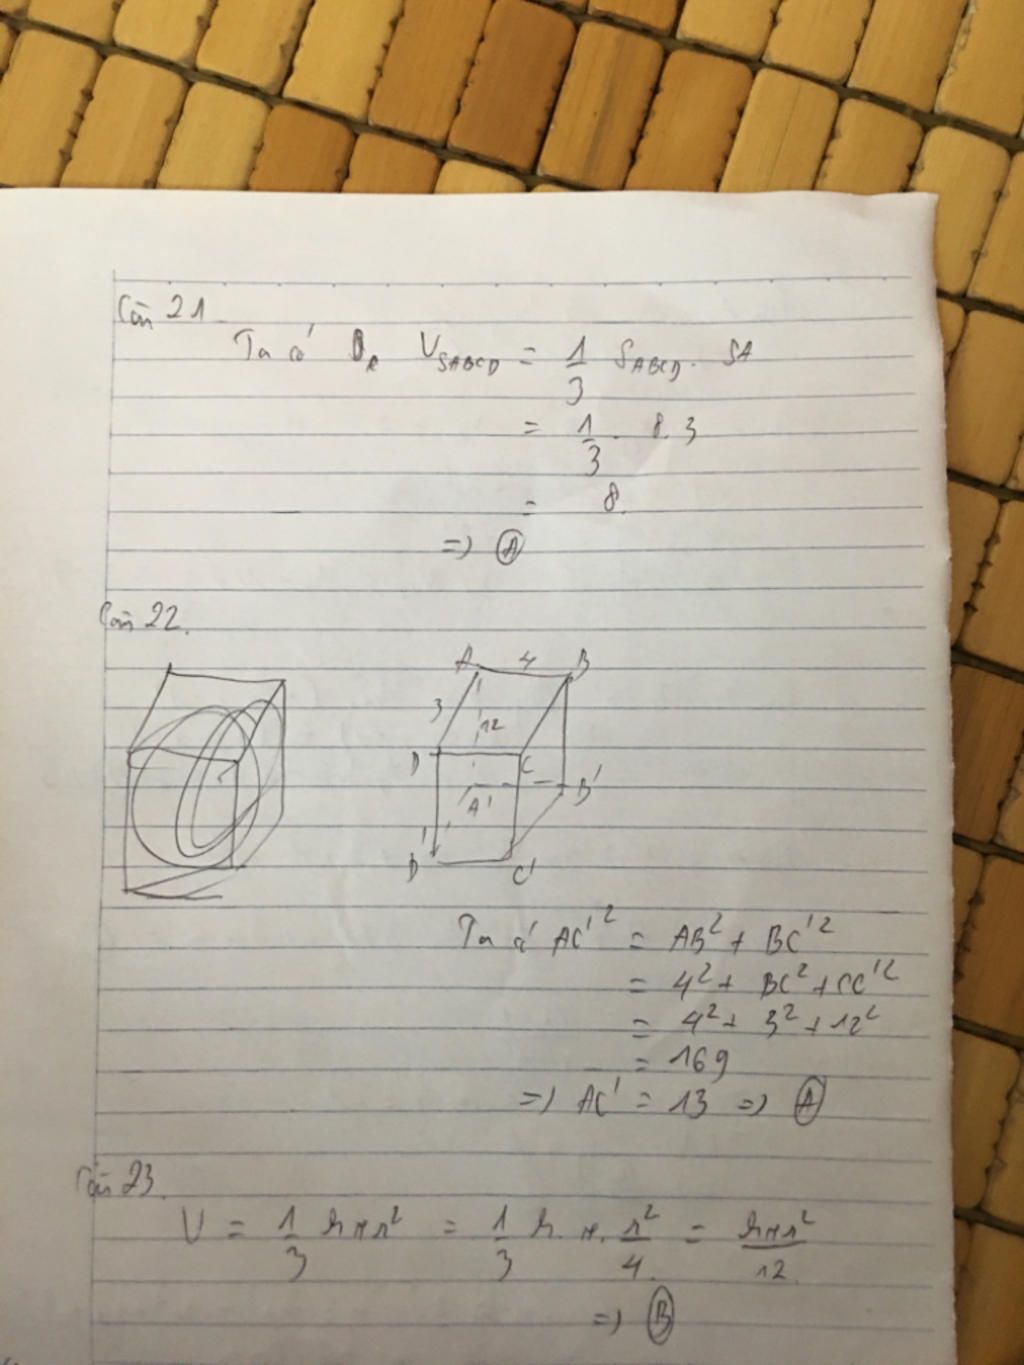 Câu 21
Ta có V_SABCD = 1/3 S_ABCD . SA
= 1/3 . 8.3
= 8.
=> A
Câu 22.
A 4 B
3
12
D C
A' B'
D' C'
Ta có AC'² = AB² + BC'²
= 4² + BC² + CC'²
= 4² + 3² + 12²
= 169
=> AC' = 13 => A
Câu 23.
V = 1/3 hπr² = 1/3 h.π.r²/4 = hπr²/12
=> B